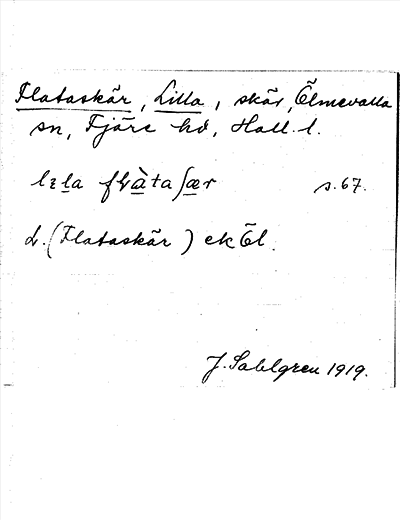 Flataskär, Lilla, skär, Ölmevalla
sn, Fjäre hd, Hall. l.
lɛla flàtaʃær s. 67.
d. (Flataskär) ek Öl.
J. Sahlgren 1919.